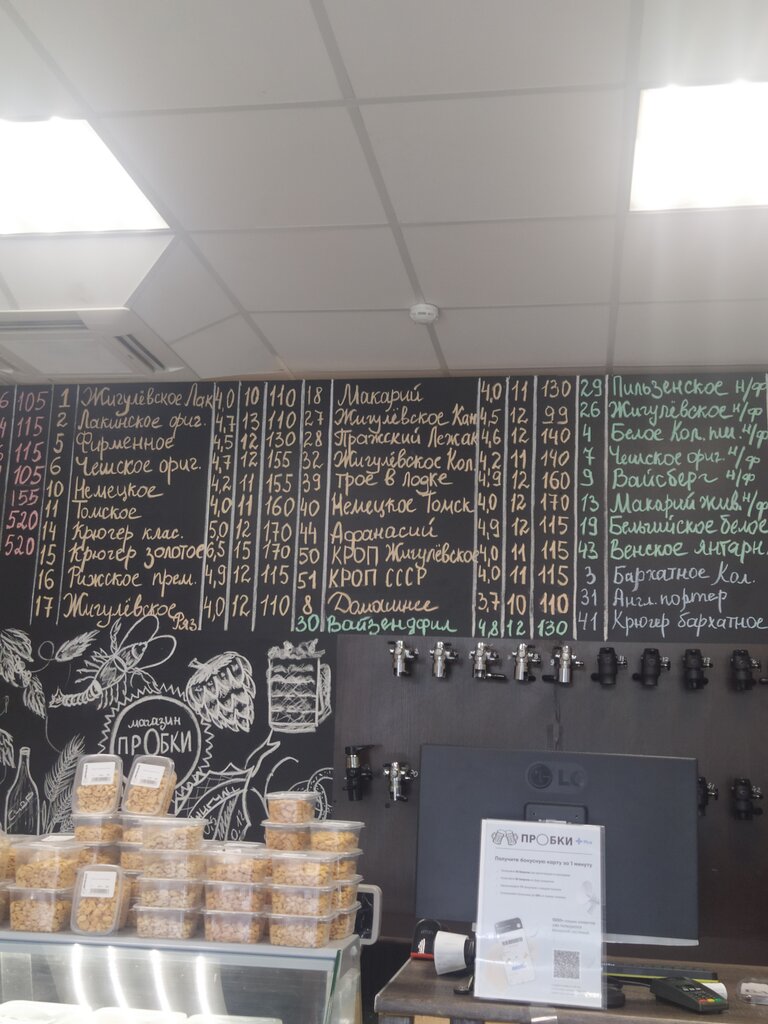 105 1 Жигулёвское Лак 4,0 10 110 18 Макарий 4,0 11 130 29 Пильзенское н/ф
115 2 Лакинское ориг. 4,7 13 110 27 Жигулёвское Кан 4,5 12 99 26 Жигулёвское н/ф
115 5 Фирменное 4,5 12 130 28 Пражский Лежак 4,6 12 140 4 Белое Кол. пш. н/ф
105 6 Чешское ориг. 4,7 12 155 32 Жигулёвское Кол. 4,2 11 140 7 Чешское ориг. н/ф
155 10 Немецкое 4,2 11 155 39 Трое в лодке 4,9 12 160 9 Вайсберг н/ф
520 11 Томское 4,0 11 160 40 Немецкое Томск 4,0 12 170 13 Макарий жив. н/ф
520 14 Крюгер клас. 5,0 12 170 44 Афанасий 4,9 12 115 19 Бельгийское белое
15 Крюгер золотое 6,5 15 170 50 КРОП Жигулёвское 4,0 11 115 43 Венское янтарн
16 Рижское прем. 4,9 12 115 51 КРОП СССР 4,0 11 115 3 Бархатное Кол.
17 Жигулёвское Ряз 4,0 12 110 8 Домашнее 3,7 10 110 31 Англ. портер
30 Вайзендфил 4,8 12 130 41 Крюгер бархатное
магазин
ПРОБКИ
LG
ПРОБКИ +Plus
Получите бонусную карту за 1 минуту